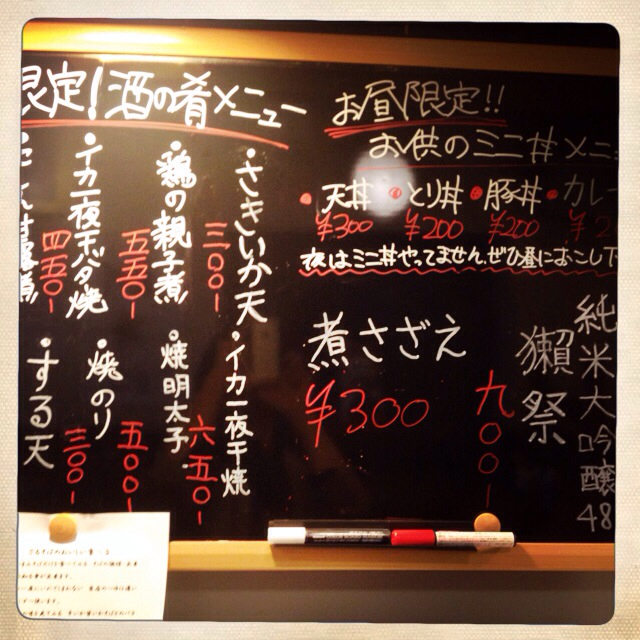 限定!酒の肴メニュー
・さきいか天
三〇〇-
・イカ一夜干焼
六五〇-
・鶏の親子煮
五五〇-
・焼明太子
五〇〇-
・イカ一夜干バタ焼
四五〇-
・焼のり
三〇〇-
・する天
お昼限定!!
お供のミニ丼メニュ
・天丼・とり丼・豚丼・カレー
¥300 ¥200 ¥200 ¥2
夜はミニ丼やってません、ぜひ昼におこし下
煮さざえ
¥300
純米大吟醸48
獺祭
九〇〇-